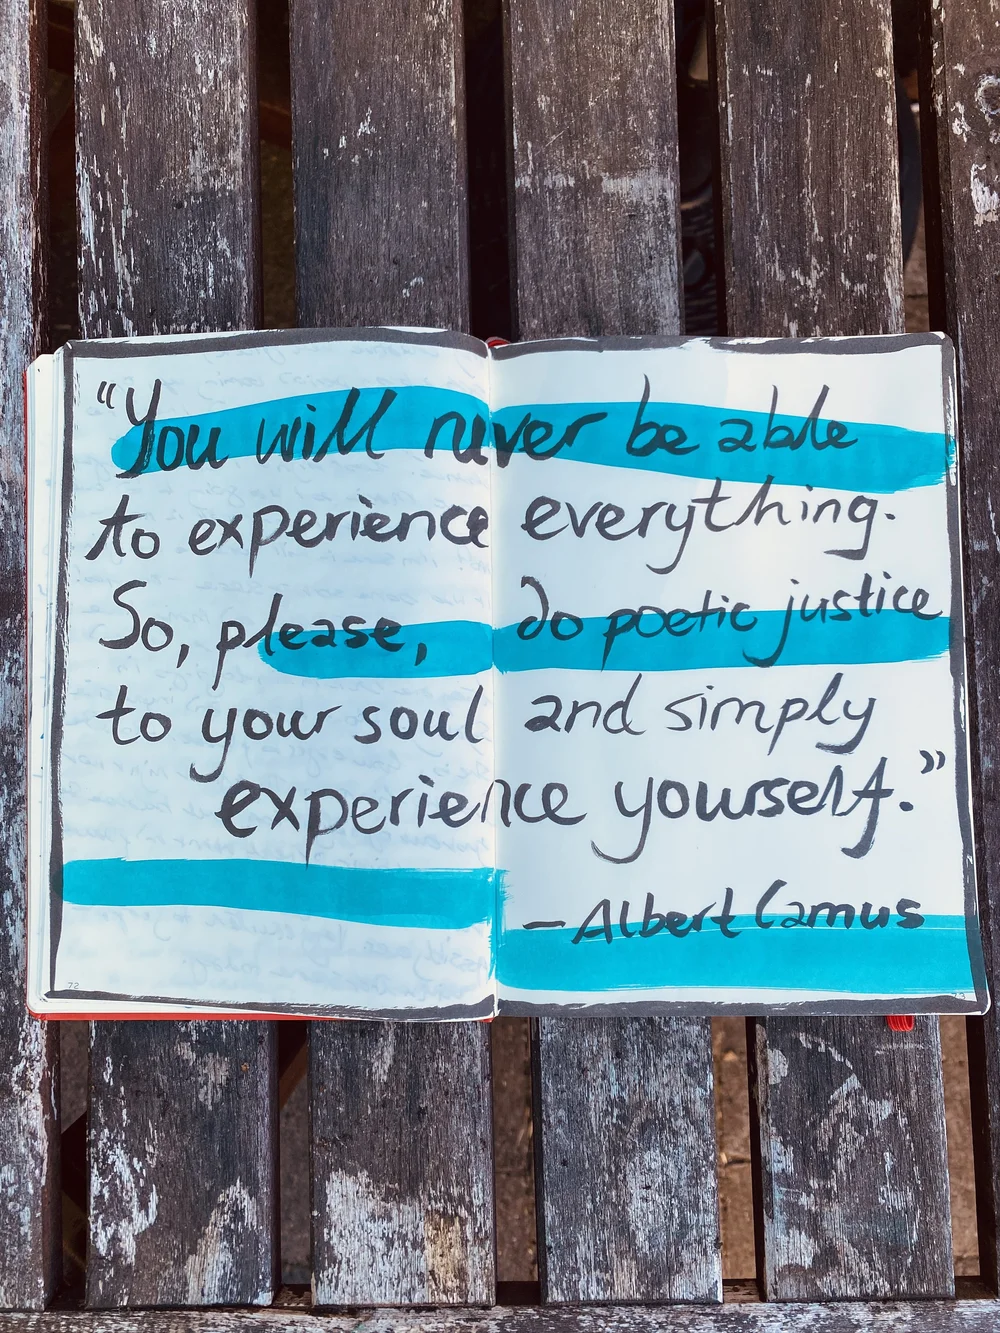 “You will never be able
to experience everything.
So, please, do poetic justice
to your soul and simply
experience yourself.”
– Albert Camus
72